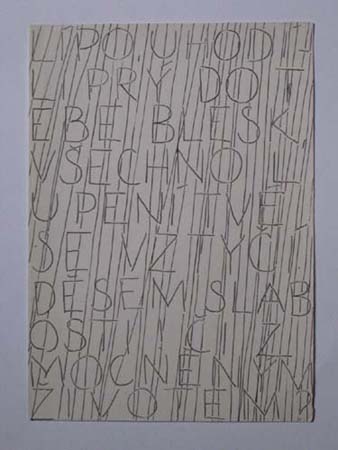 LÍPO UHODÍ-
LI PRÝ DO T
EBE BLESK
VŠECHNO L
UPENÍ TVÉ
SE VZTYČÍ
DĚSEM SLAB
OSTI ČI Z
MOCNĚNÍM
ŽIVOTEM?